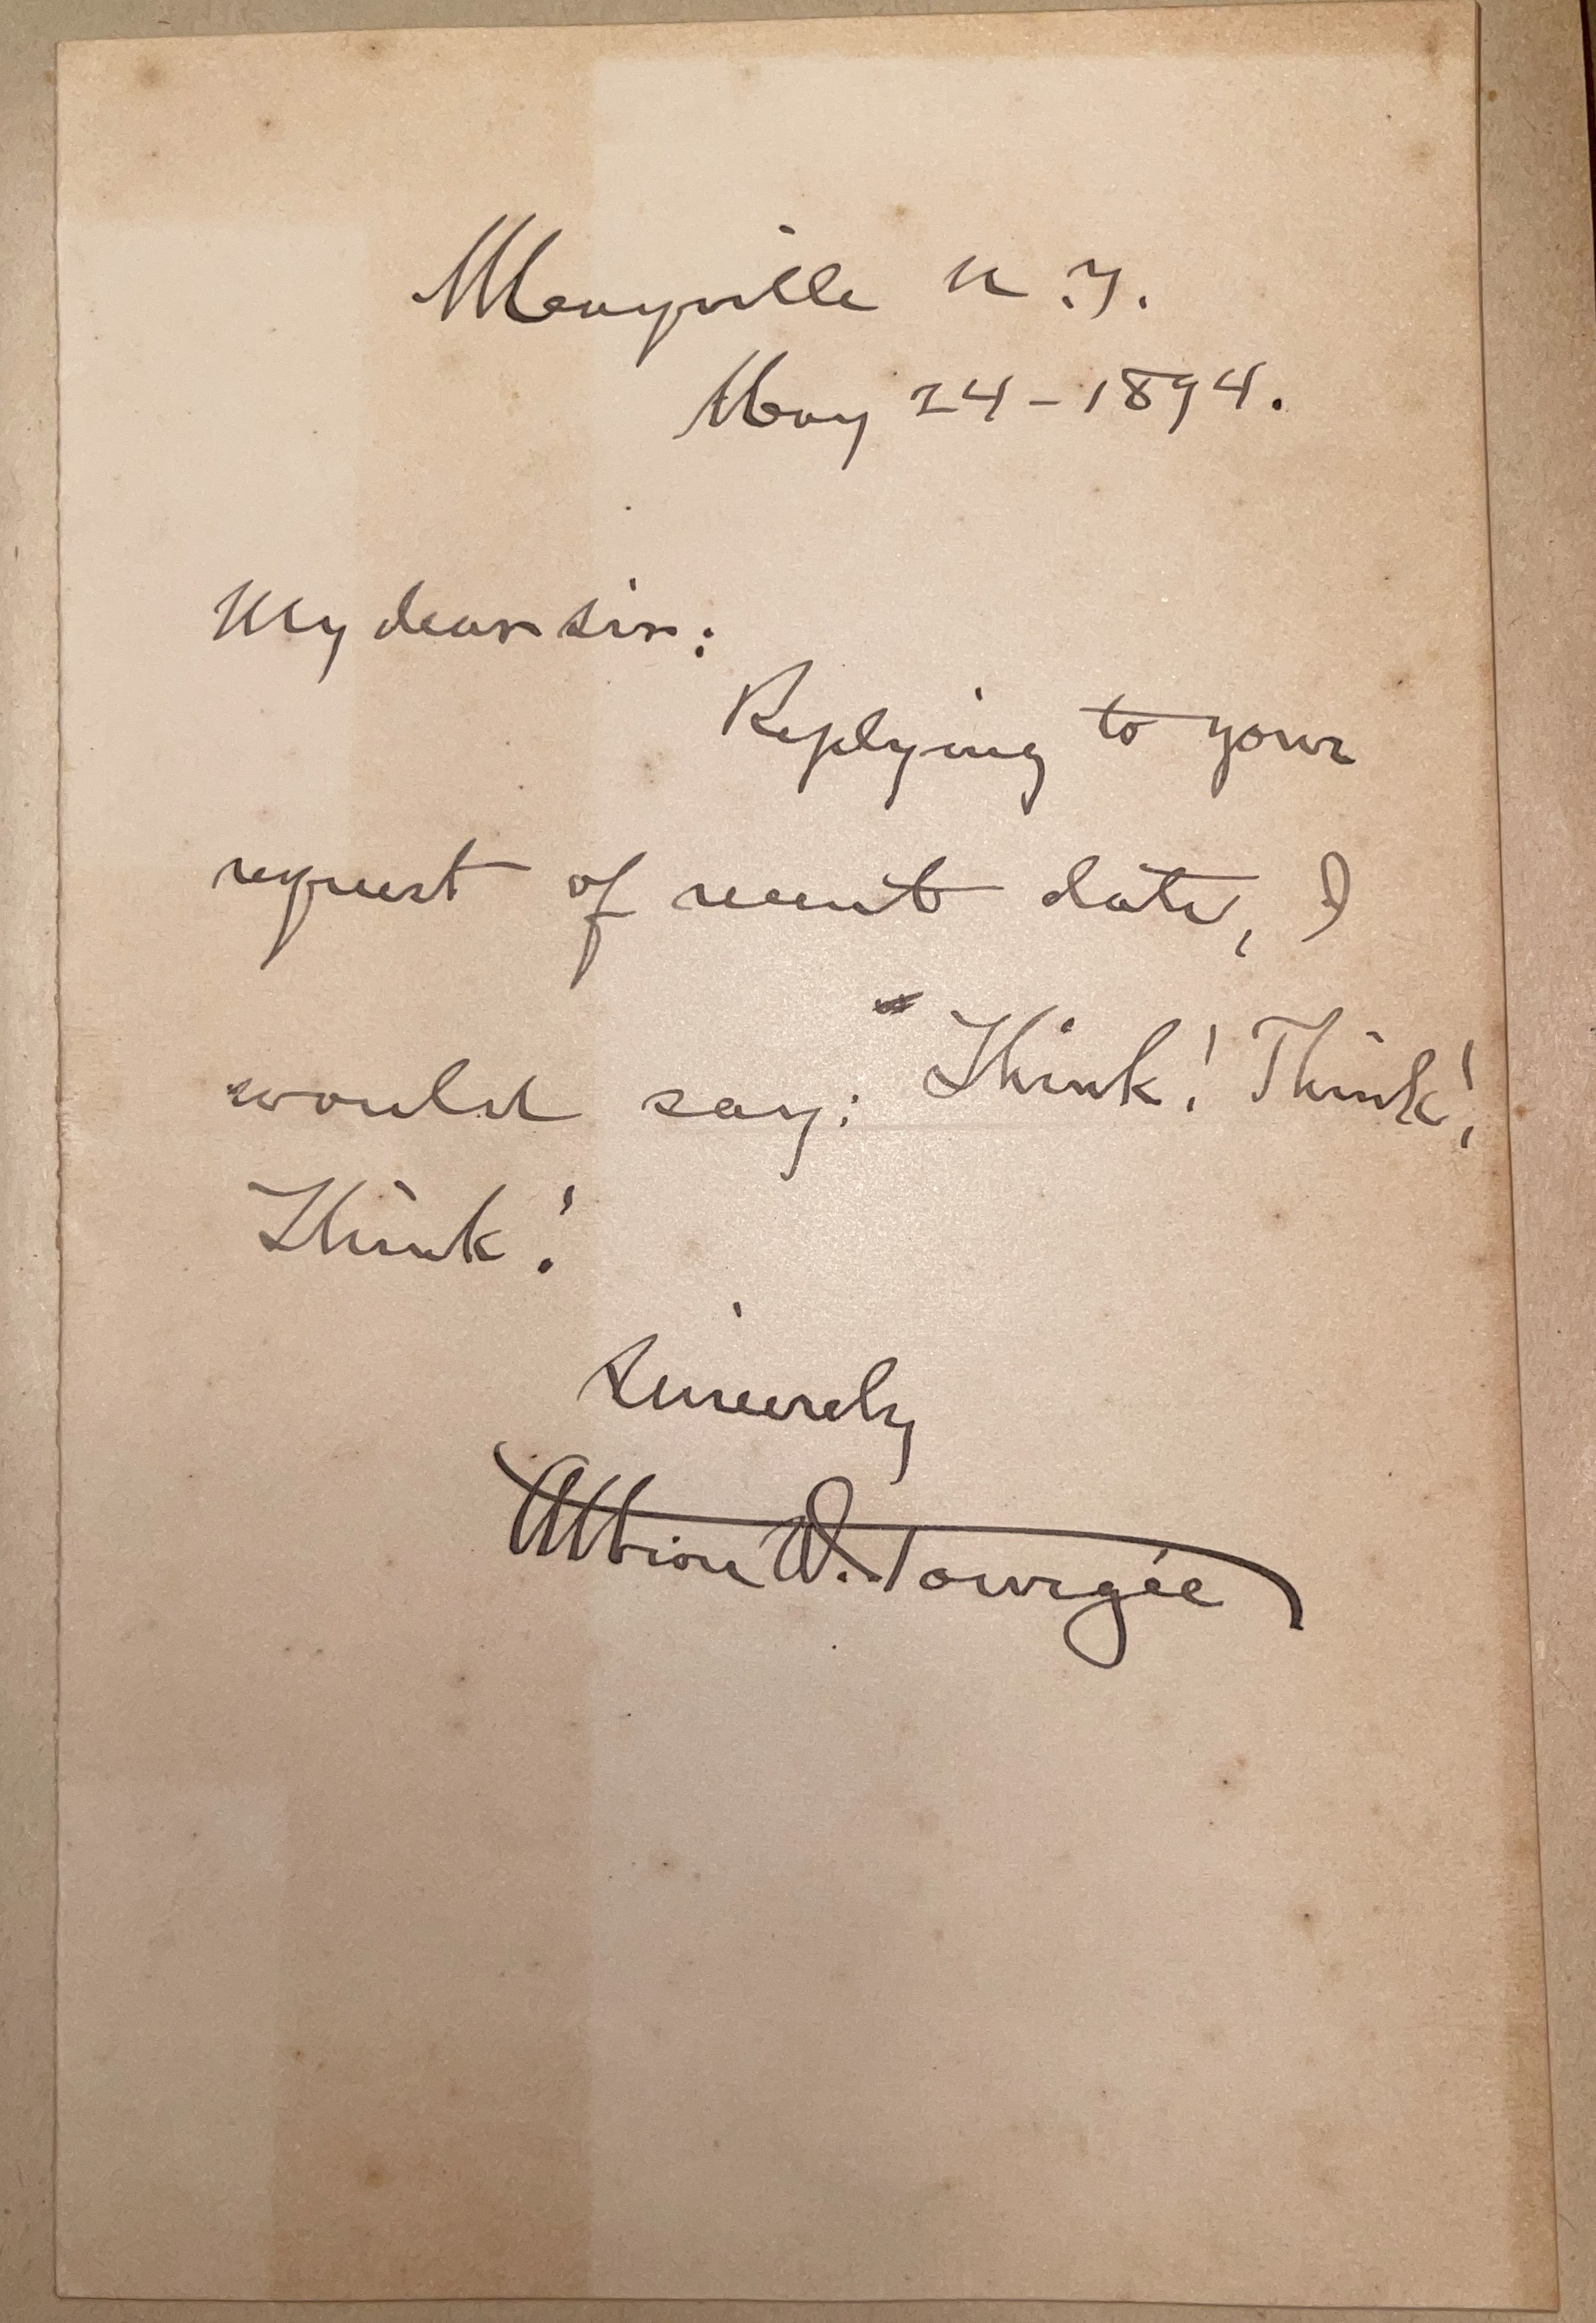 Mayville N.Y.
May 24-1894.
My dear sir:
Replying to your
request of recent date, I
would say: Think! Think!
Think!
Sincerely
Albion W. Tourgée